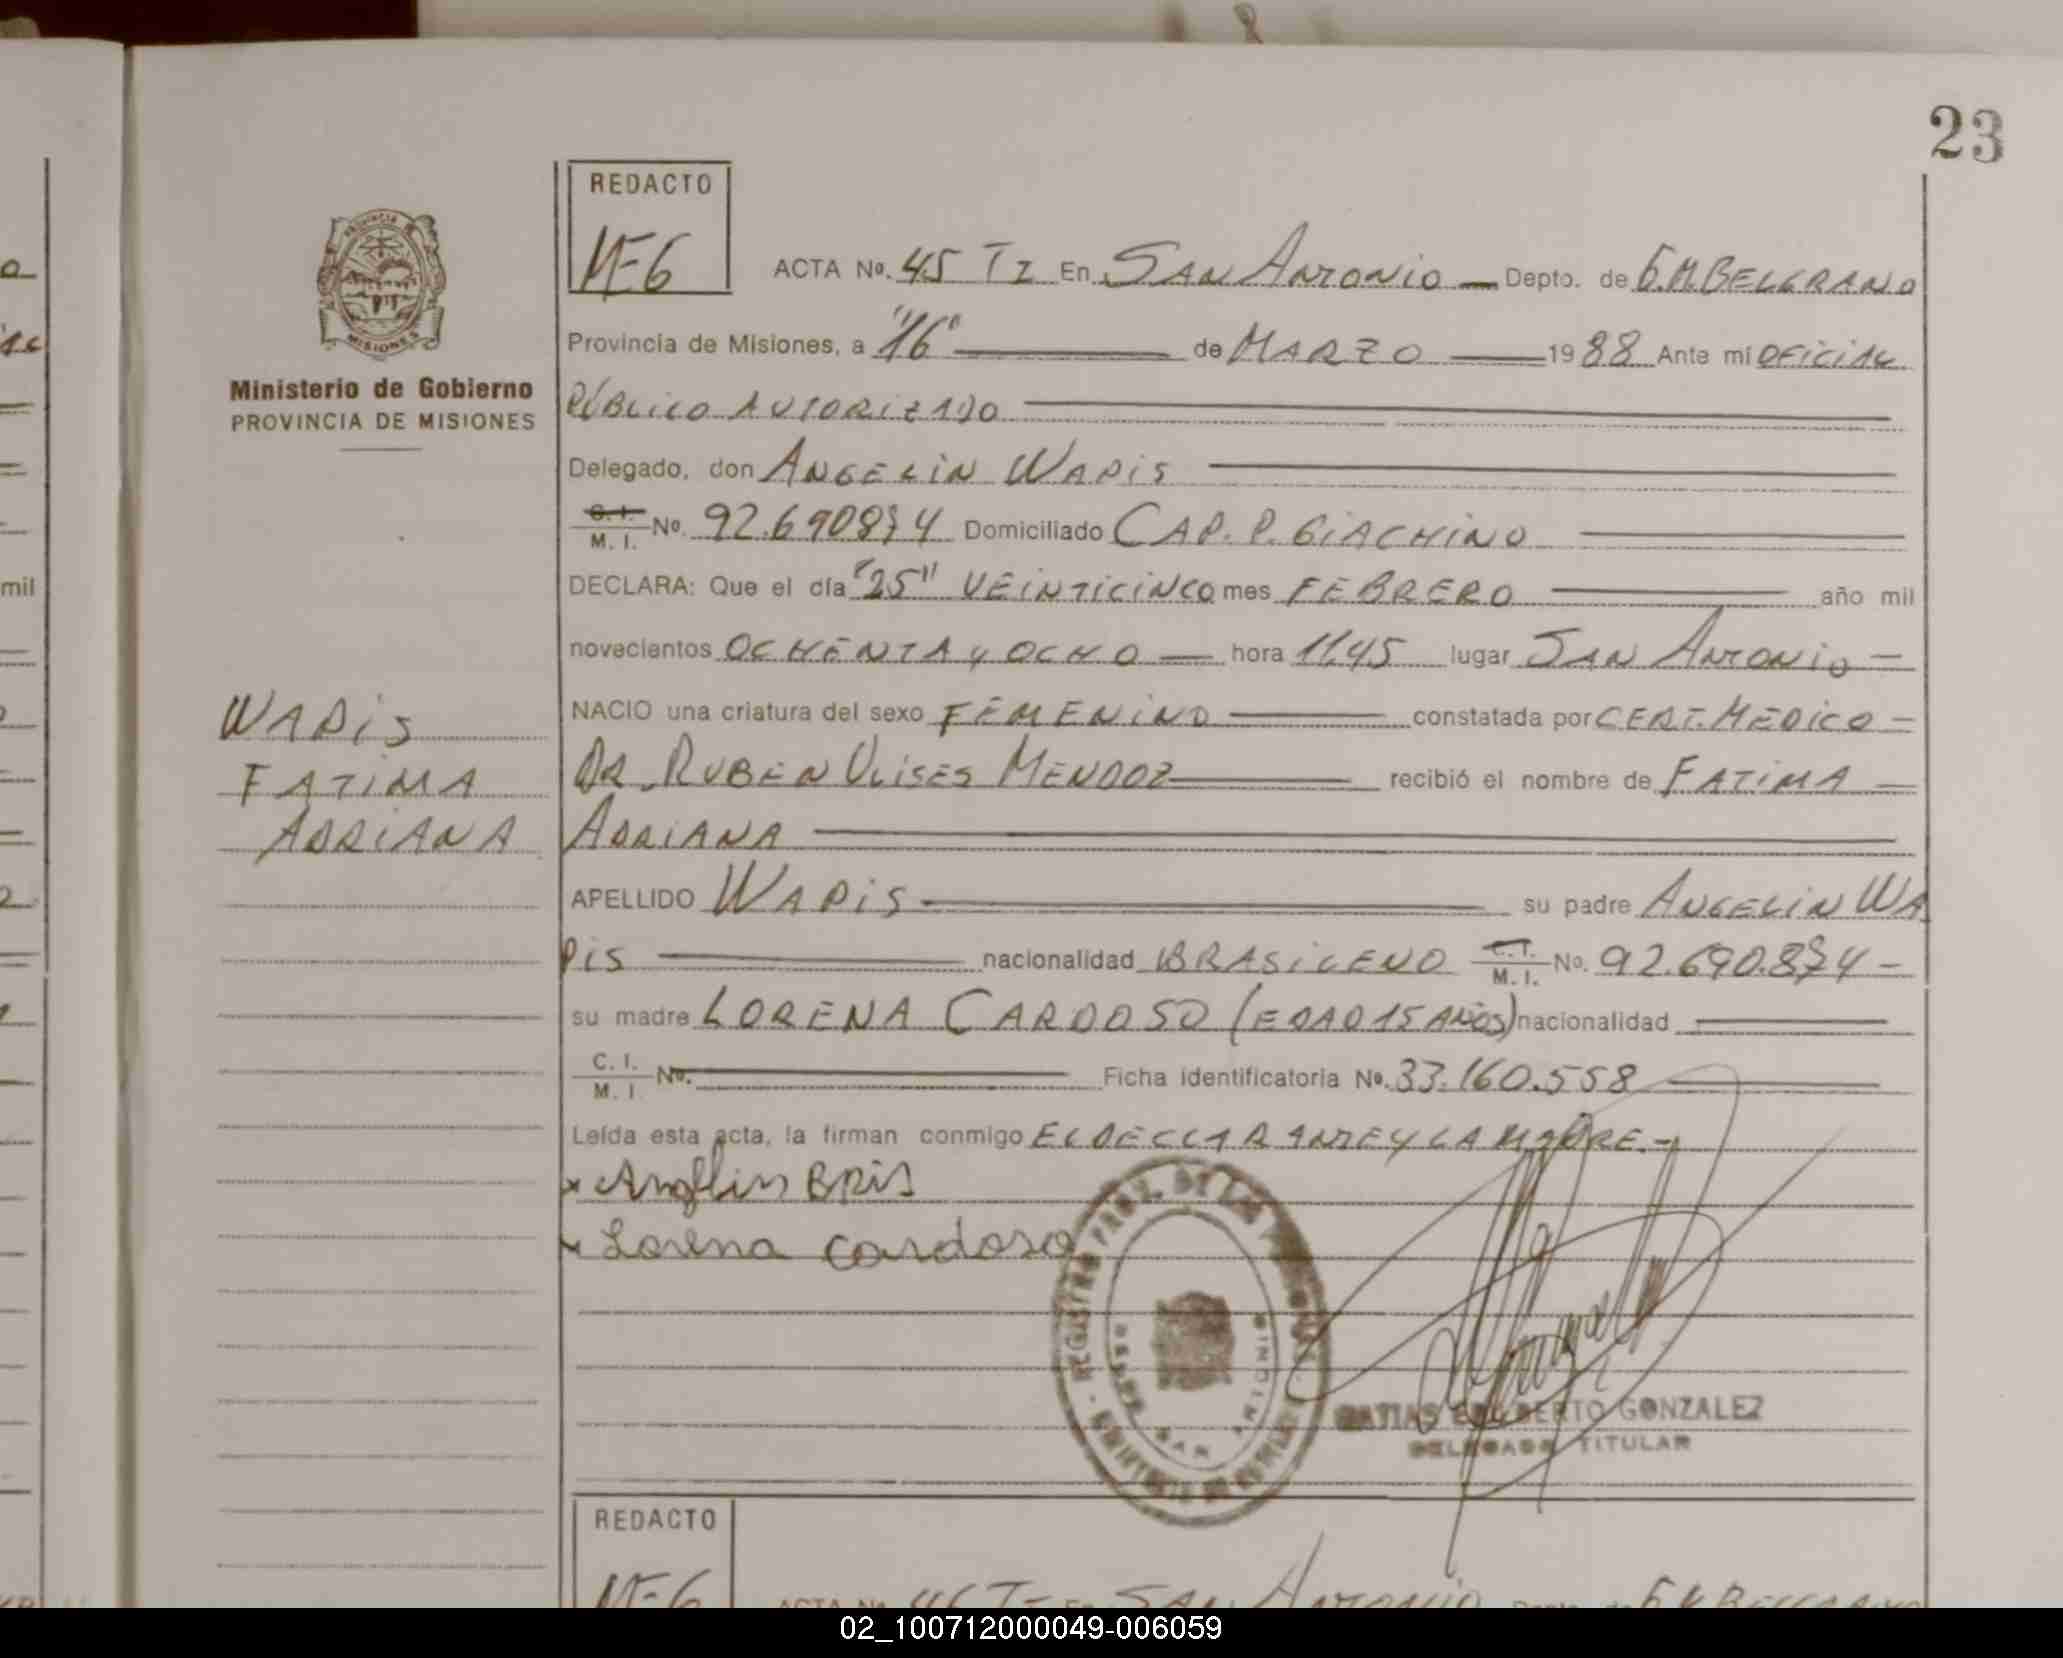 23
REDACTO
ME6
ACTA No. 45 TI En SAN ANTONIO — Depto. de G.M.BELGRANO
Provincia de Misiones, a "16" — de MARZO — 1988 Ante mí OFICIAL
PÚBLICO AUTORIZADO
Delegado, don ANGELIN WAPIS
C. I. / M. I. No. 92.690874 Domiciliado CAP. P. GIACHINO
DECLARA: Que el día "25" VEINTICINCO mes FEBRERO — año mil
novecientos OCHENTA y OCHO — hora 11.45 lugar SAN ANTONIO —
NACIO una criatura del sexo FEMENINO — constatada por CERT. MEDICO —
DR. RUBEN ULISES MENDOZ — recibió el nombre de FATIMA —
ADRIANA
APELLIDO WAPIS — su padre ANGELIN WA
PIS — nacionalidad BRASILENO C. I. / M. I. No. 92.690.874 —
su madre LORENA CARDOSO (EDAD 15 AÑOS) nacionalidad —
C. I. / M. I. No. — Ficha identificatoria No. 33.160.558 —
Leída esta acta, la firman conmigo EL DECLARANTE Y LA MADRE. —
Lorena cardoso
REGISTRO PROV. DE LAS PERSONAS
SAN ANTONIO
MATIAS EDILBERTO GONZALEZ
DELEGADO TITULAR
Ministerio de Gobierno
PROVINCIA DE MISIONES
WAPIS
FATIMA
ADRIANA
REDACTO
ME6
ACTA No. 46 TI En SAN ANTONIO Depto. de G.M BELGRANO
mil
02_100712000049-006059